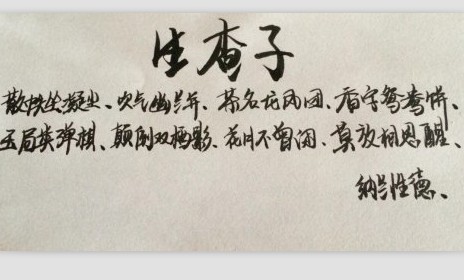 生查子
散帙坐凝尘、吹气幽兰并、茶名龙凤团、香字鸳鸯饼、
玉局类弹棋、颠倒双栖影、花月不曾闲、莫放相思醒、
纳兰性德、